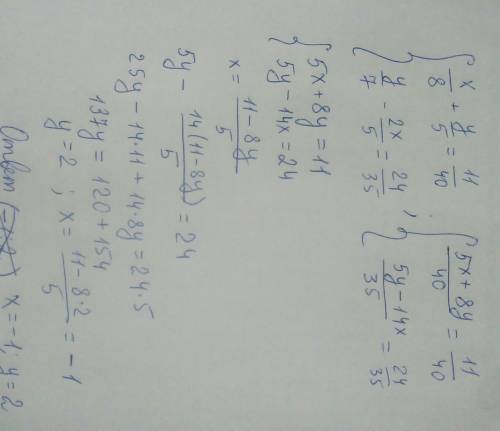 { x/8 + y/5 = 11/40 ; { (5x+8y)/40 = 11/40
{ y/7 - 2x/5 = 24/35 { (5y-14x)/35 = 24/35
{ 5x+8y=11
{ 5y-14x=24
x = (11-8y)/5
5y - 14(11-8y)/5 = 24
25y - 14·11 + 14·8y = 24·5
137y = 120+154
y=2 ; x = (11-8·2)/5 = -1
Ответ x=-1; y=2